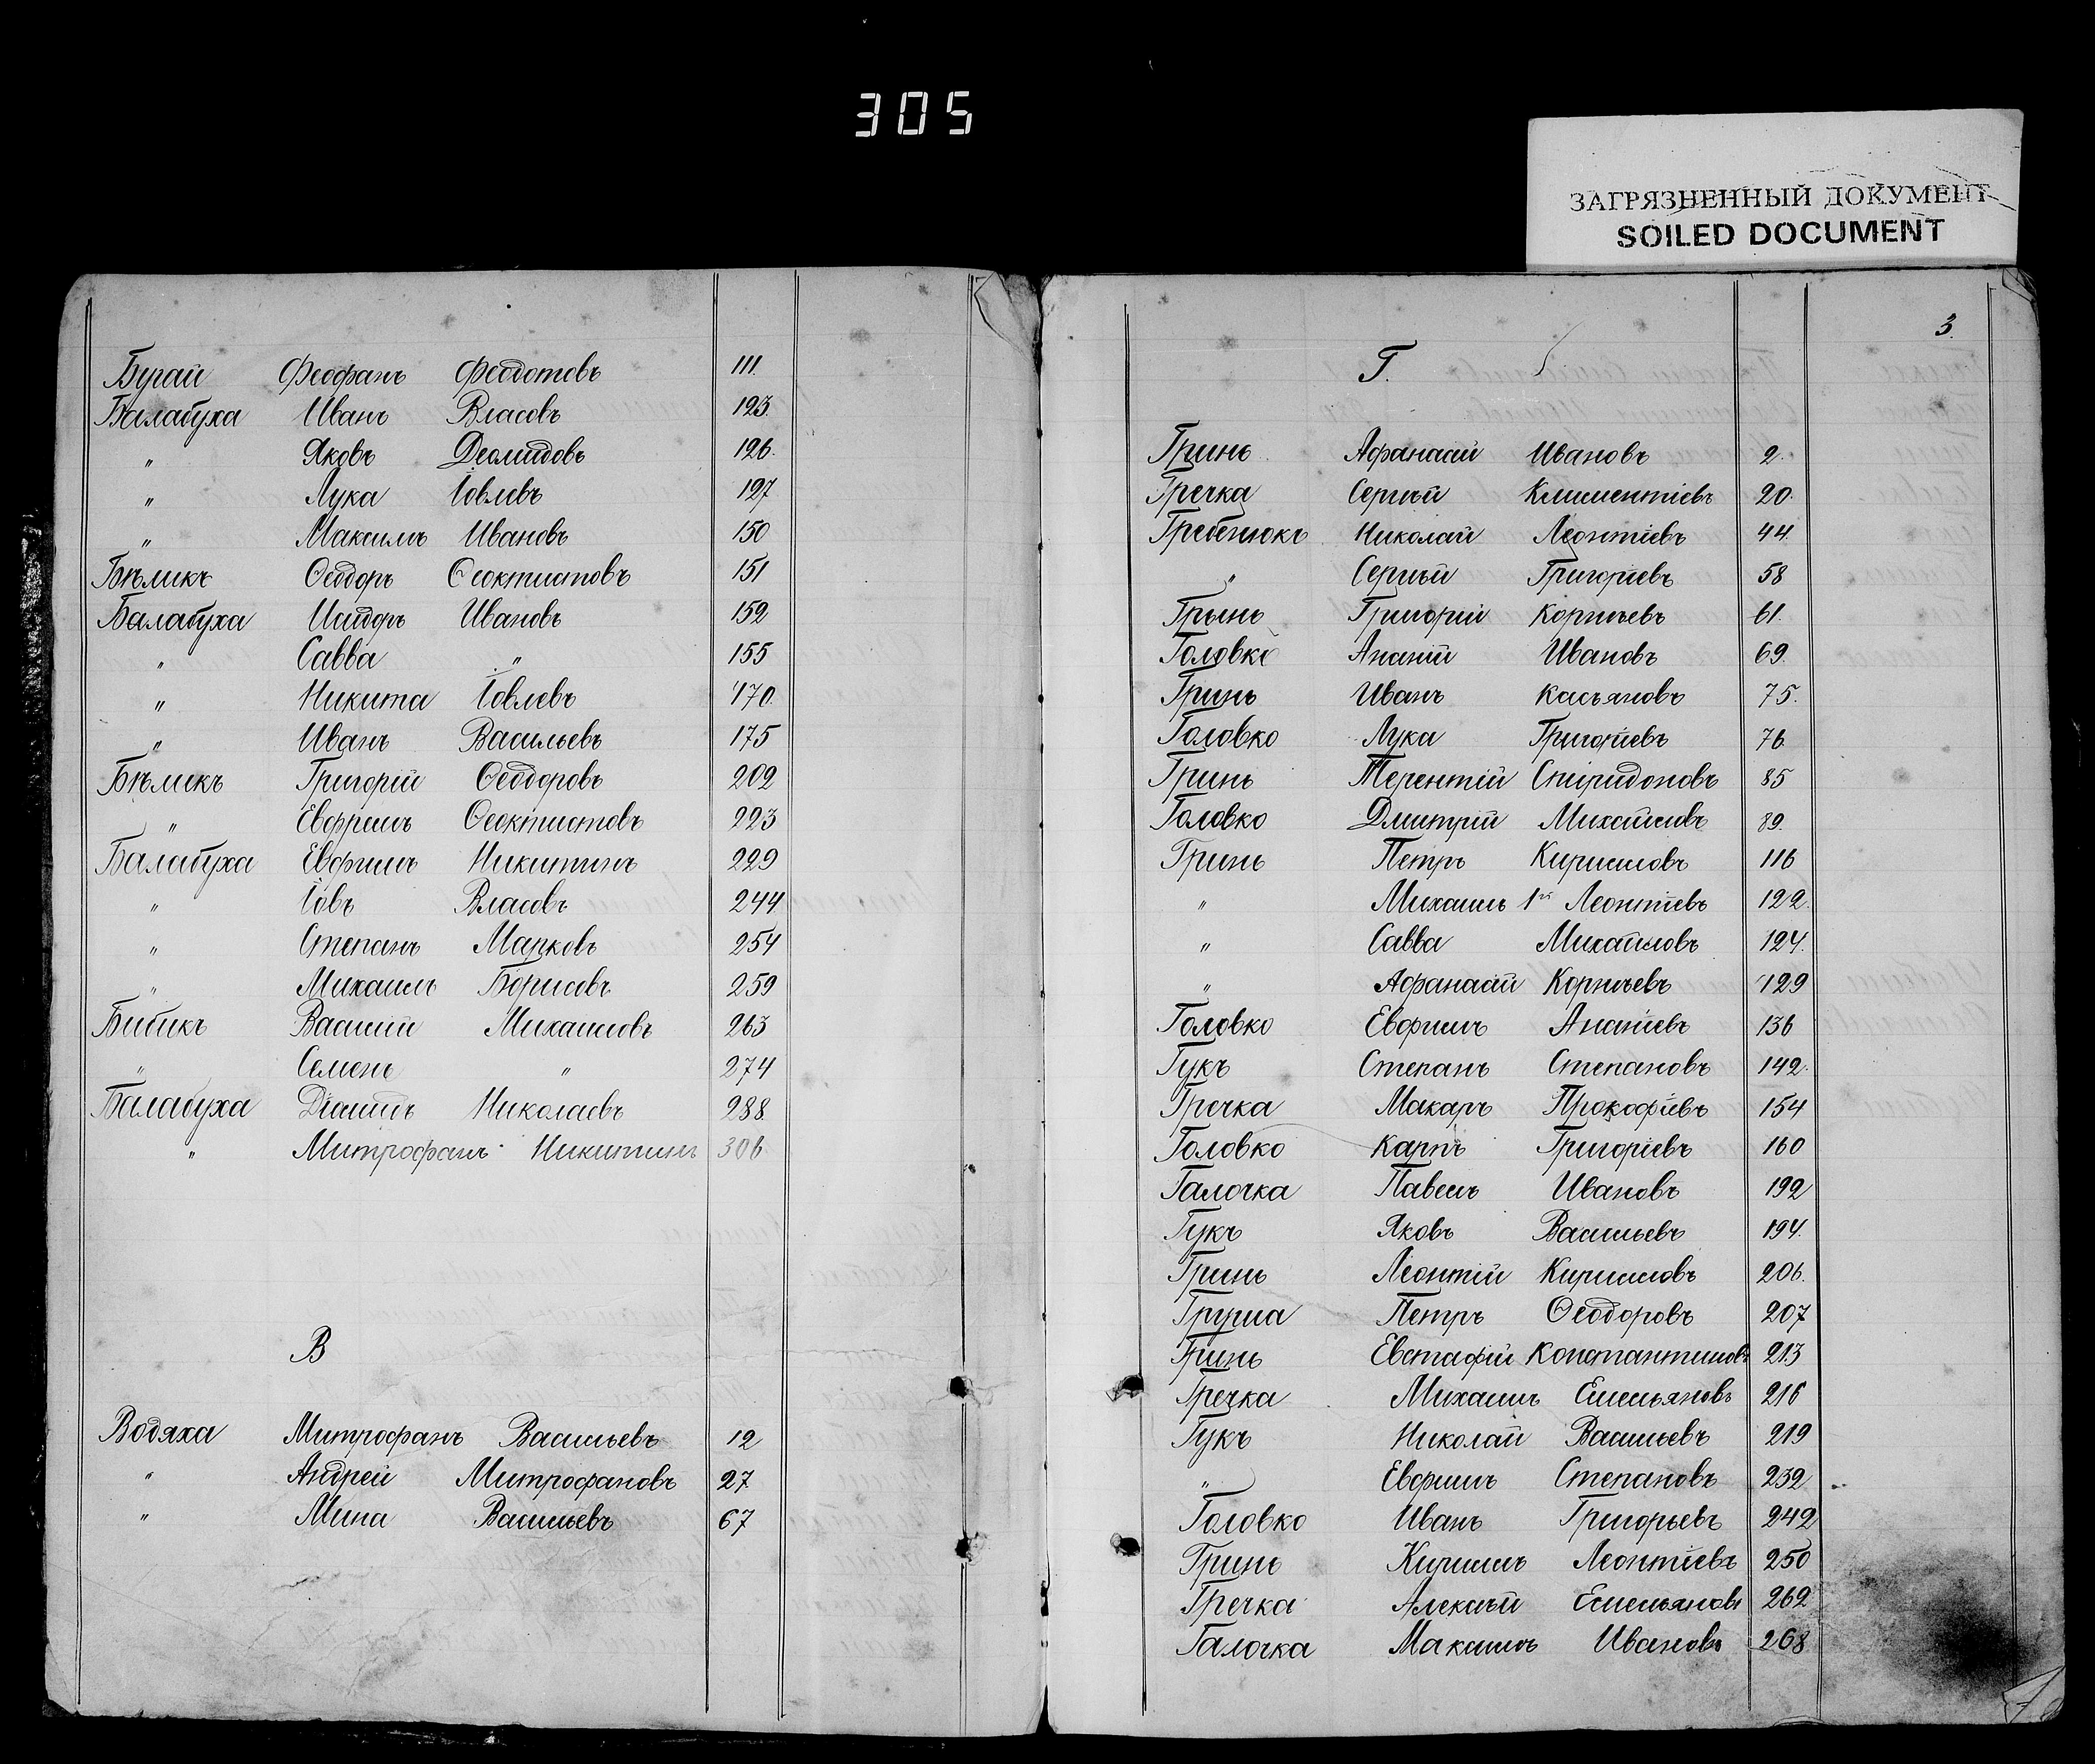 305
ЗАГРЯЗНЕННЫЙ ДОКУМЕНТ
SOILED DOCUMENT
Бугай Феофанъ Федотовъ 111.
Балабуха Иванъ Власовъ 123.
" Яковъ Деомидовъ 126.
" Лука Іовлевъ 127
" Максимъ Ивановъ 150
Бѣликъ Ѳеодоръ Ѳеоктистовъ 151
Балабуха Исидоръ Ивановъ 152
" Савва " 155
" Никита Іовлевъ 170.
" Иванъ Васильевъ 175
Бѣликъ Григорій Ѳеодоровъ 202
" Евфримъ Ѳеоктистовъ 223
Балабуха Евфимъ Никитинъ 229
" Іовъ Власовъ 244
" Степанъ Марковъ 254
" Михаилъ Борисовъ 259
Бибикъ Василій Михаиловъ 263
" Семенъ " 274
Балабуха Даніилъ Николаевъ 288
" Митрофанъ Никитинъ 306
В
Водяха Митрофанъ Васильевъ 12
" Андрей Митрофановъ 27
" Мина Васильевъ 67
3.
Г.
Гринь Афанасій Ивановъ 2.
Гречка Сергѣй Климентіевъ 20.
Гребенюкъ Николай Леонтіевъ 44.
" Сергѣй Григоріевъ 58
Грынь Григорій Корнѣевъ 61.
Головко Ананій Ивановъ 69.
Гринь Иванъ Касьяновъ 75.
Головко Лука Григоріевъ 76.
Гринь Терентій Спиридоновъ 85
Головко Дмитрій Михайловъ 89.
Гринь Петръ Кирилловъ 116
" Михаилъ 1й Леонтіевъ 122.
" Савва Михайловъ 124.
" Афанасій Корнѣевъ 129
Головко Евфимъ Ананіевъ 136
Гукъ Степанъ Степановъ 142.
Гречка Макаръ Прокофіевъ 154
Головко Карпъ Григоріевъ 160
Галочка Павелъ Ивановъ 192
Гукъ Яковъ Васильевъ 194.
Гринь Леонтій Кирилловъ 206.
Груша Петръ Ѳеодоровъ 207
Гринь Евстафій Константиновъ 213
Гречка Михаилъ Емельяновъ 216
Гукъ Николай Васильевъ 219
" Евфимъ Степановъ 232
Головко Иванъ Григорьевъ 242
Гринь Кирилъ Леонтіевъ 250
Гречка Алексѣй Емельяновъ 262
Галочка Максимъ Ивановъ 268